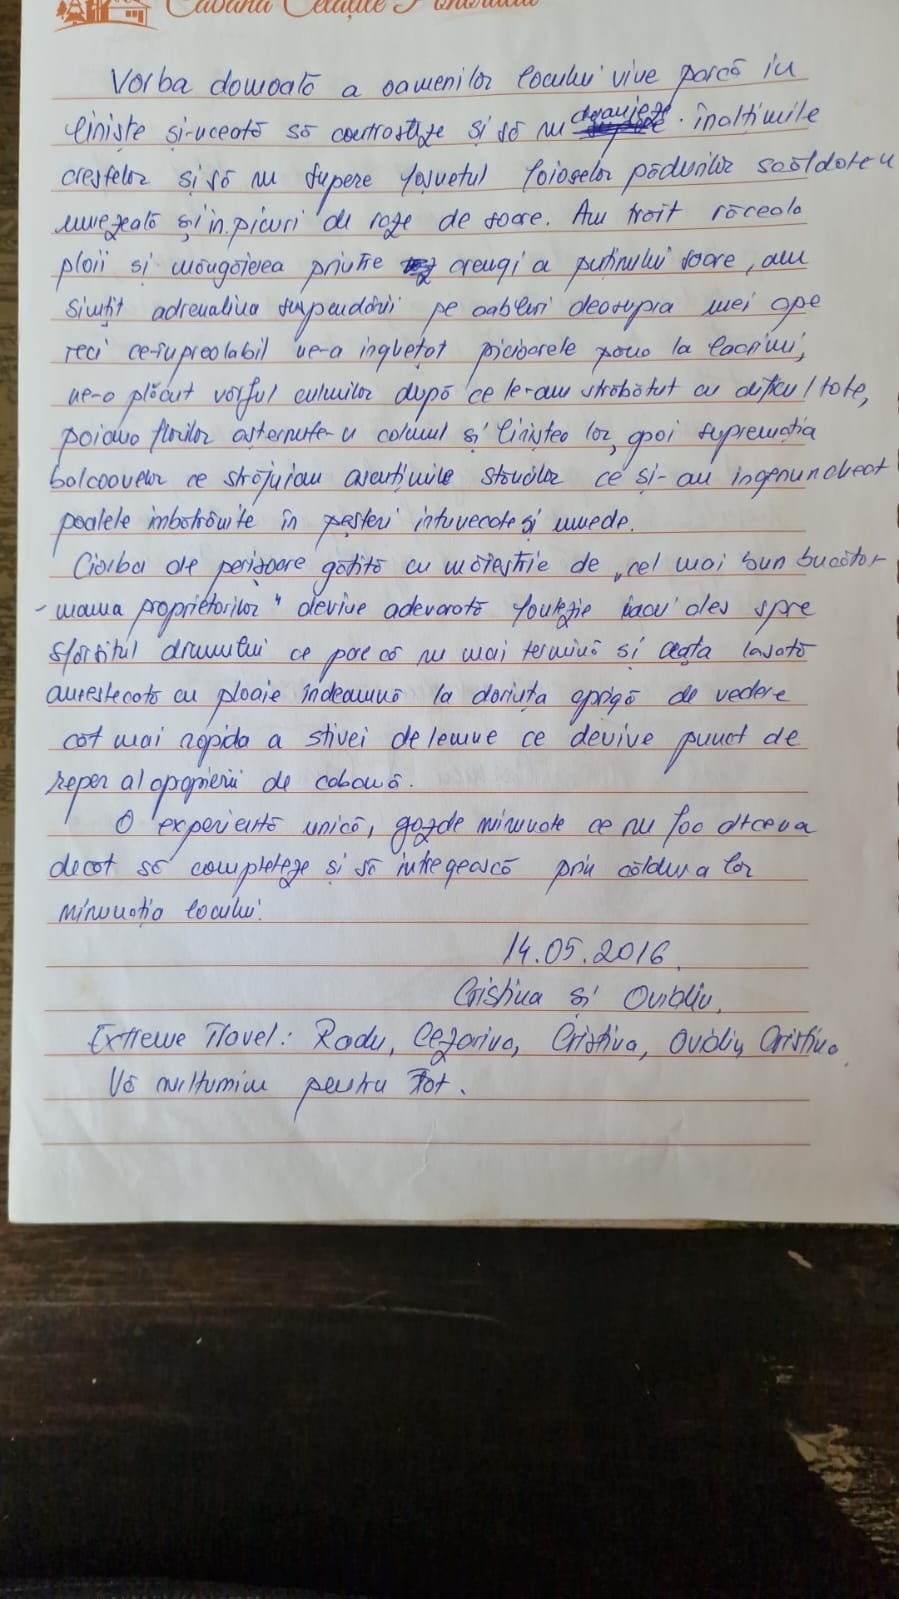 Cabana Cetățile Ponorului
Vorba domoată a oamenilor locului vive parcă în
liniște și-uceată să contrasteze și să nu deranjeze înălțimile
crestelor și să nu supere foșnetul foioaselor pădurilor scăldate-n
umezeală și in picuri de raze de soare. Am trăit răceala
ploii și mângâierea printre crengi a puținului soare, am
simțit adrenalina suspendării pe cabluri deasupra unei ape
reci ce-ne-a inghețat picioarele pana la lacrimi,
ne-a plăcut vârful culmilor după ce le-am străbătut cu dificultate,
poiana florilor asternute-n calmul și liniștea lor, apoi supremația
balcoanelor ce străjuiau ascuțimile stâncilor ce și-au ingenuncheat
poalele imbătrânite în peșteri intunecate și umede.
Ciorba de perișoare gătită cu măiestrie de „cel mai bun bucătar
- mama proprietarilor" devine adevarată fantezie mai ales spre
sfârșitul drumului ce pare că nu mai termină și ceața lasată
amestecată cu ploaie îndeamnă la dorința aprigă de vedere
cât mai rapida a stivei de lemne ce devine punct de
reper al apropierii de cabană.
O experiență unică, gazde minunate ce nu fac altceva
decât să completeze și să intregească prin căldura lor
minunăția locului.
14.05.2016
Cristina și Ovidiu.
Extreme Travel: Radu, Cezarina, Cristina, Ovidiu, Cristina
Vă multumim pentru tot.